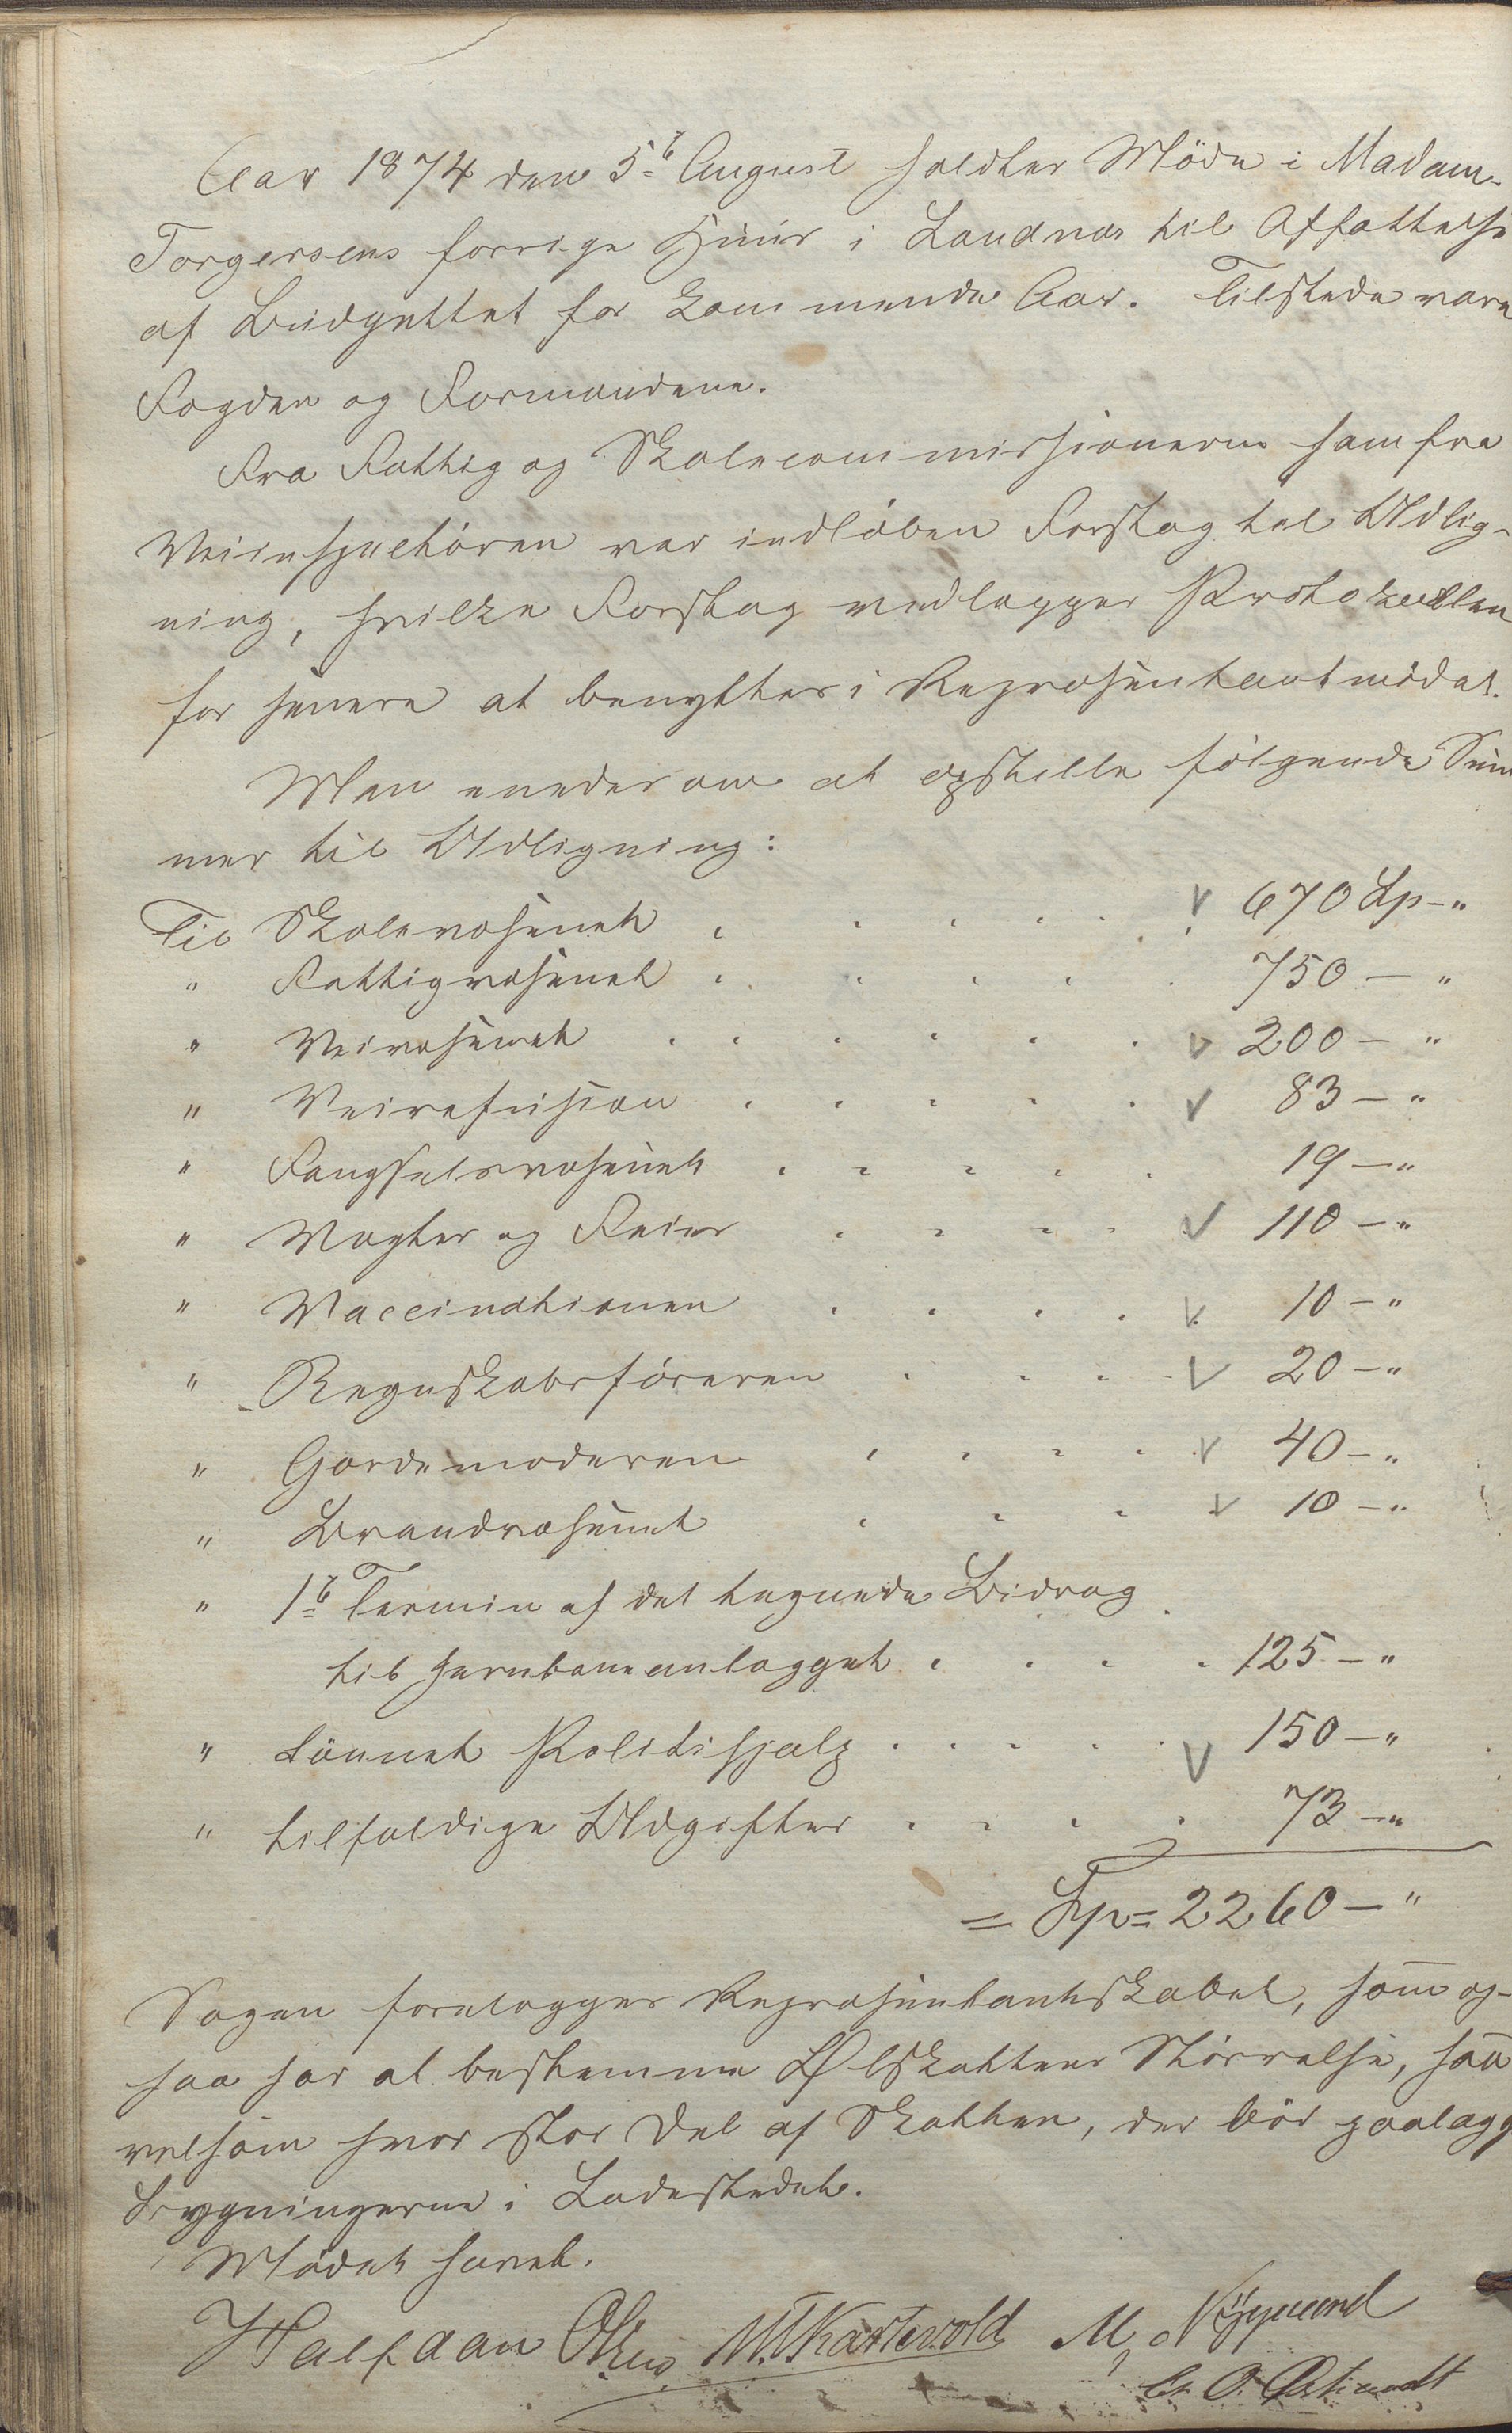 Aar 1874 den 5te August holdtes Möde i Madam
Torgersens forrige Huus i Sandnæs til Affattelse
af Budgettet for kommende Aar. Tilstede vare
Fogden og Formændene.
Fra Fattig og Skolecommissionerne som fra
Veiinspektören var indlöben Forslag til Udlig-
ning, hvilke Forslag vedlægges Protokollen
for senere at benyttes i Repræsentantmödet.
Man enedes om at opstille fölgende Sum
mer til Udligning:
Til Skolevæsenet . . . . . 670 Sp – "
" Fattigvæsenet . . . . . 750 – "
" Veivæsenet . . . . . . 200 – "
" Veirefusion . . . . . 83 – "
" Fængselsvæsenet . . . . . 19 – "
" Vægter og Feier . . . . 110 – "
" Vaccinationen . . . . 10 – "
" Regnskabsföreren . . . . 20 – "
" Gjordemoderen . . . . 40 – "
" Brandvæsenet . . . 10 – "
" 1te Termin af det tegnede Bidrag
til Jernbaneanlægget . . . . 125 – "
" lönnet Politihjælp . . . . . 150 – "
" tilfældige Udgifter . . . . 73 – "
= Sp = 2260 – "
Sagen forelægges Repræsentantskabet, som og-
saa har at bestemme Ølskattens Störrelse, saa
velsom hvor stor Del af Skatten, der bör paalægg
Bygningerne i Ladestedet.
Mödet hævet.
Halfdan Olsen M. Nÿgaard